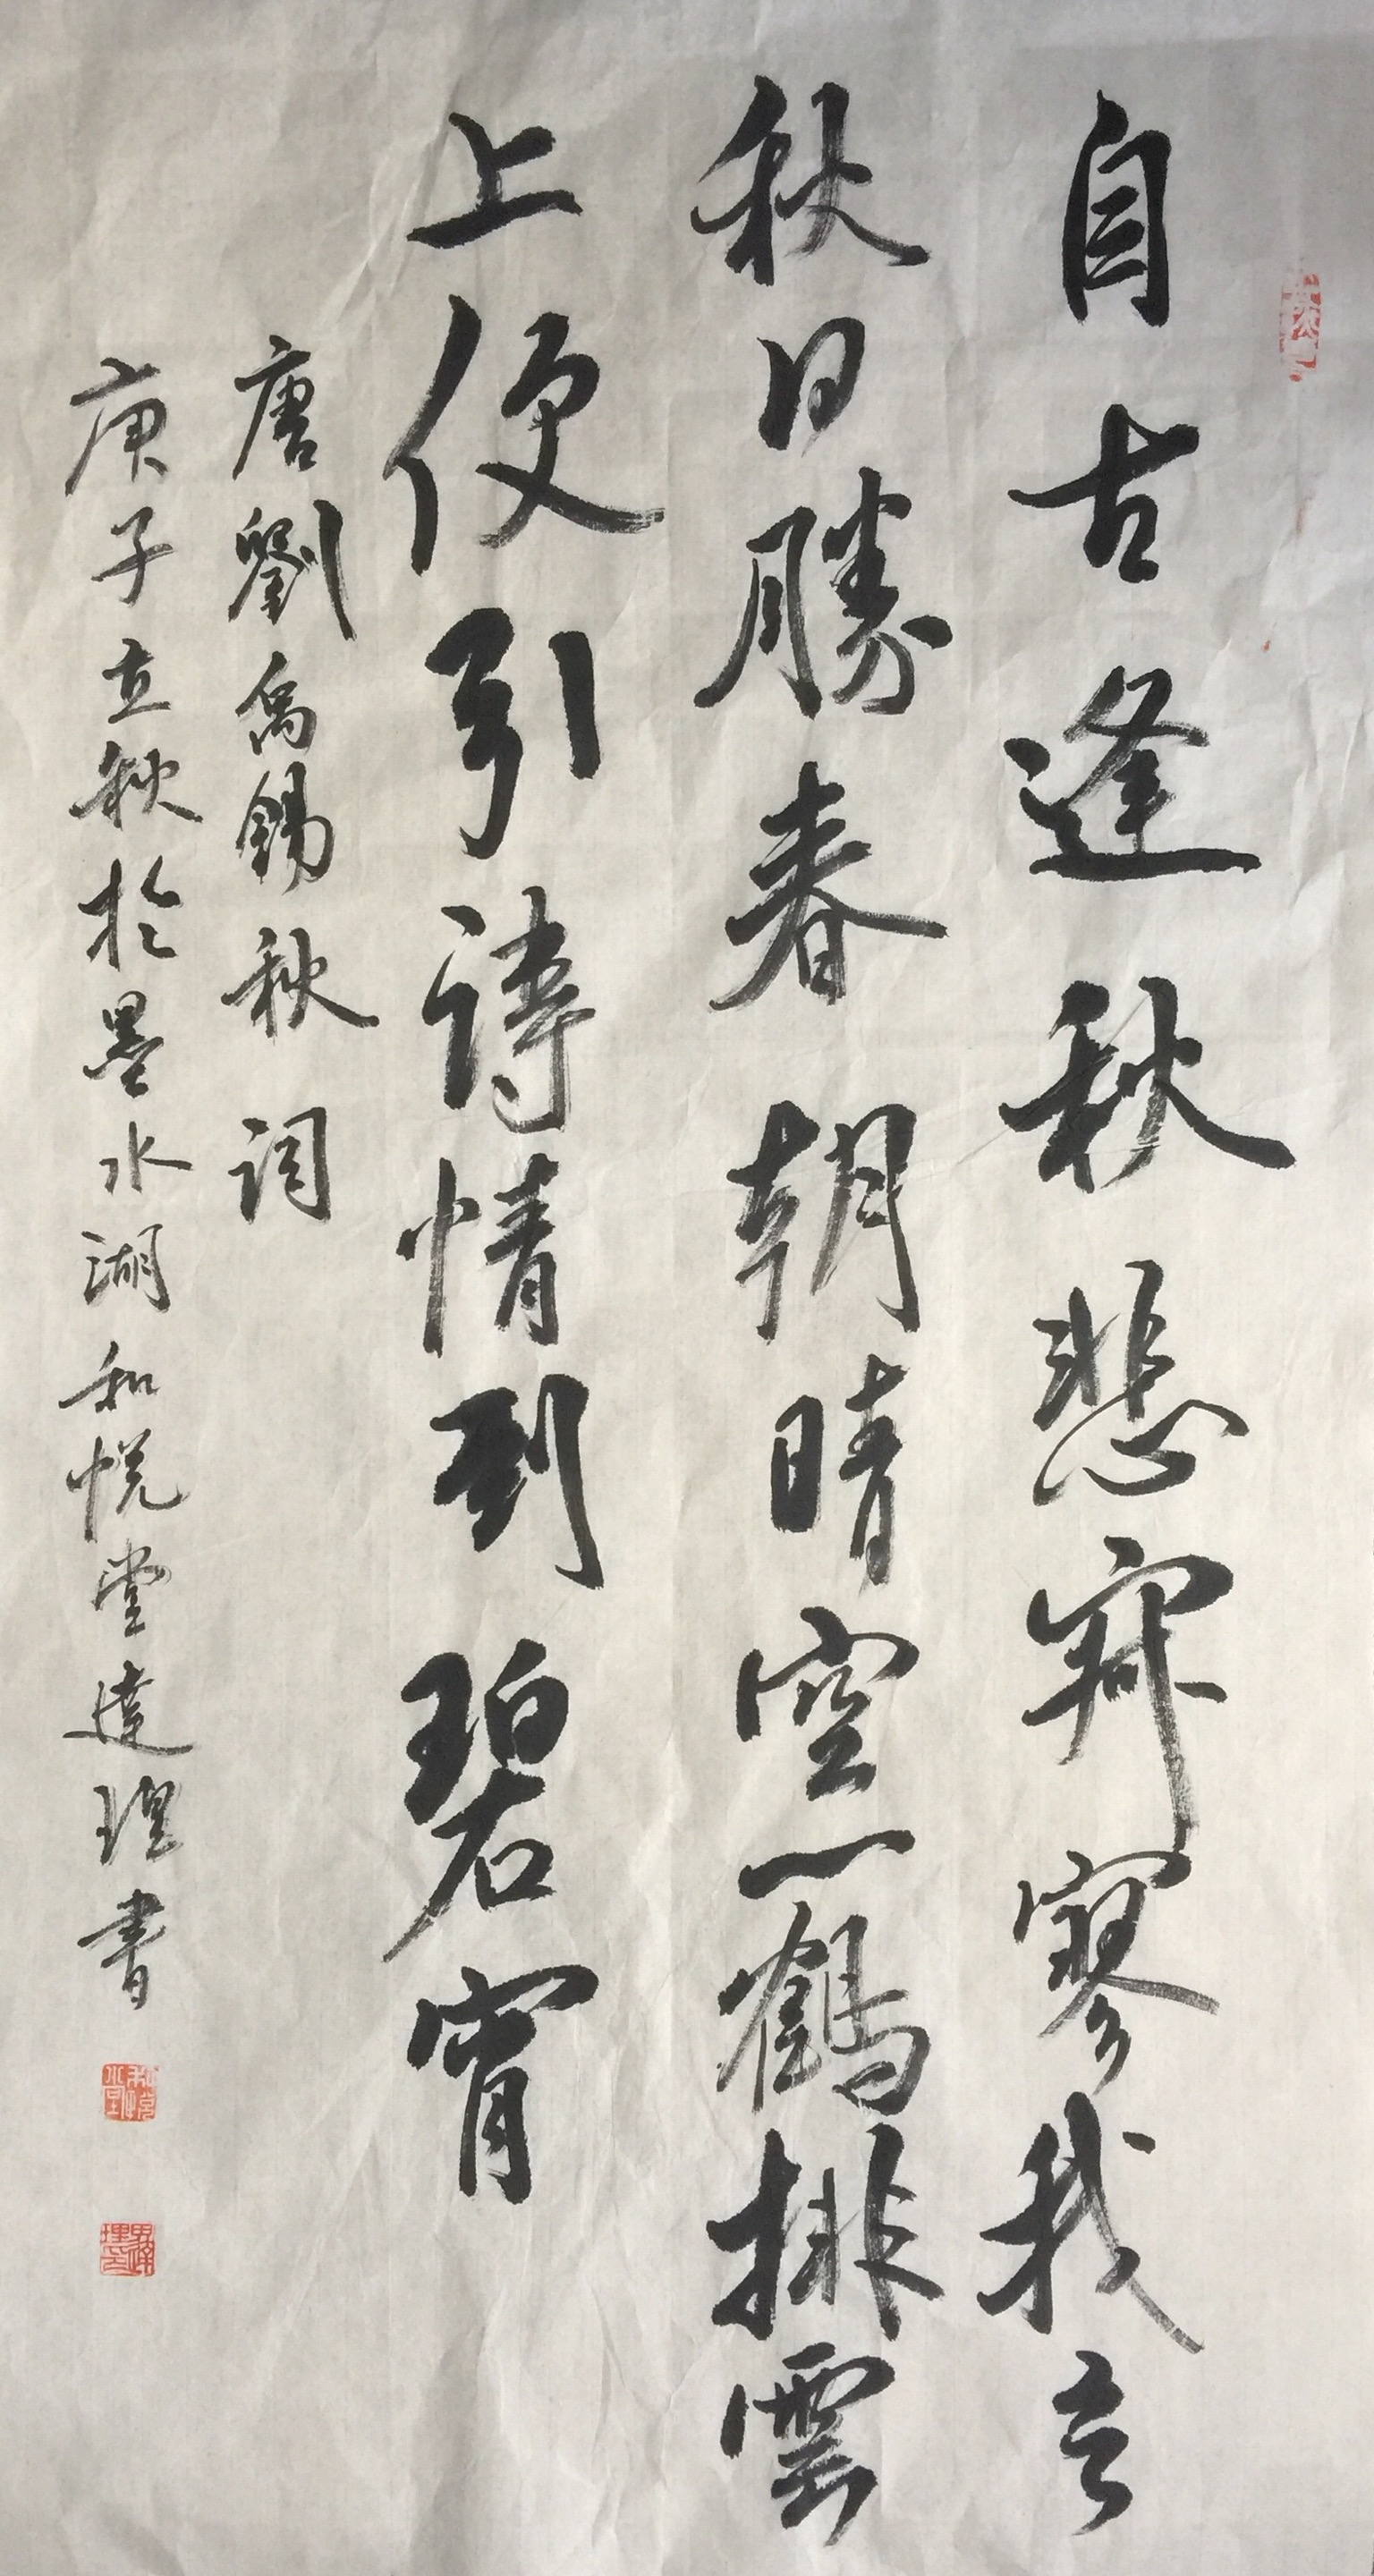 自古逢秋悲寂寥我言
秋日勝春朝晴空一鶴排雲
上便引詩情到碧宵
唐劉禹錫秋詞
庚子立秋於墨水湖和悅堂達理書